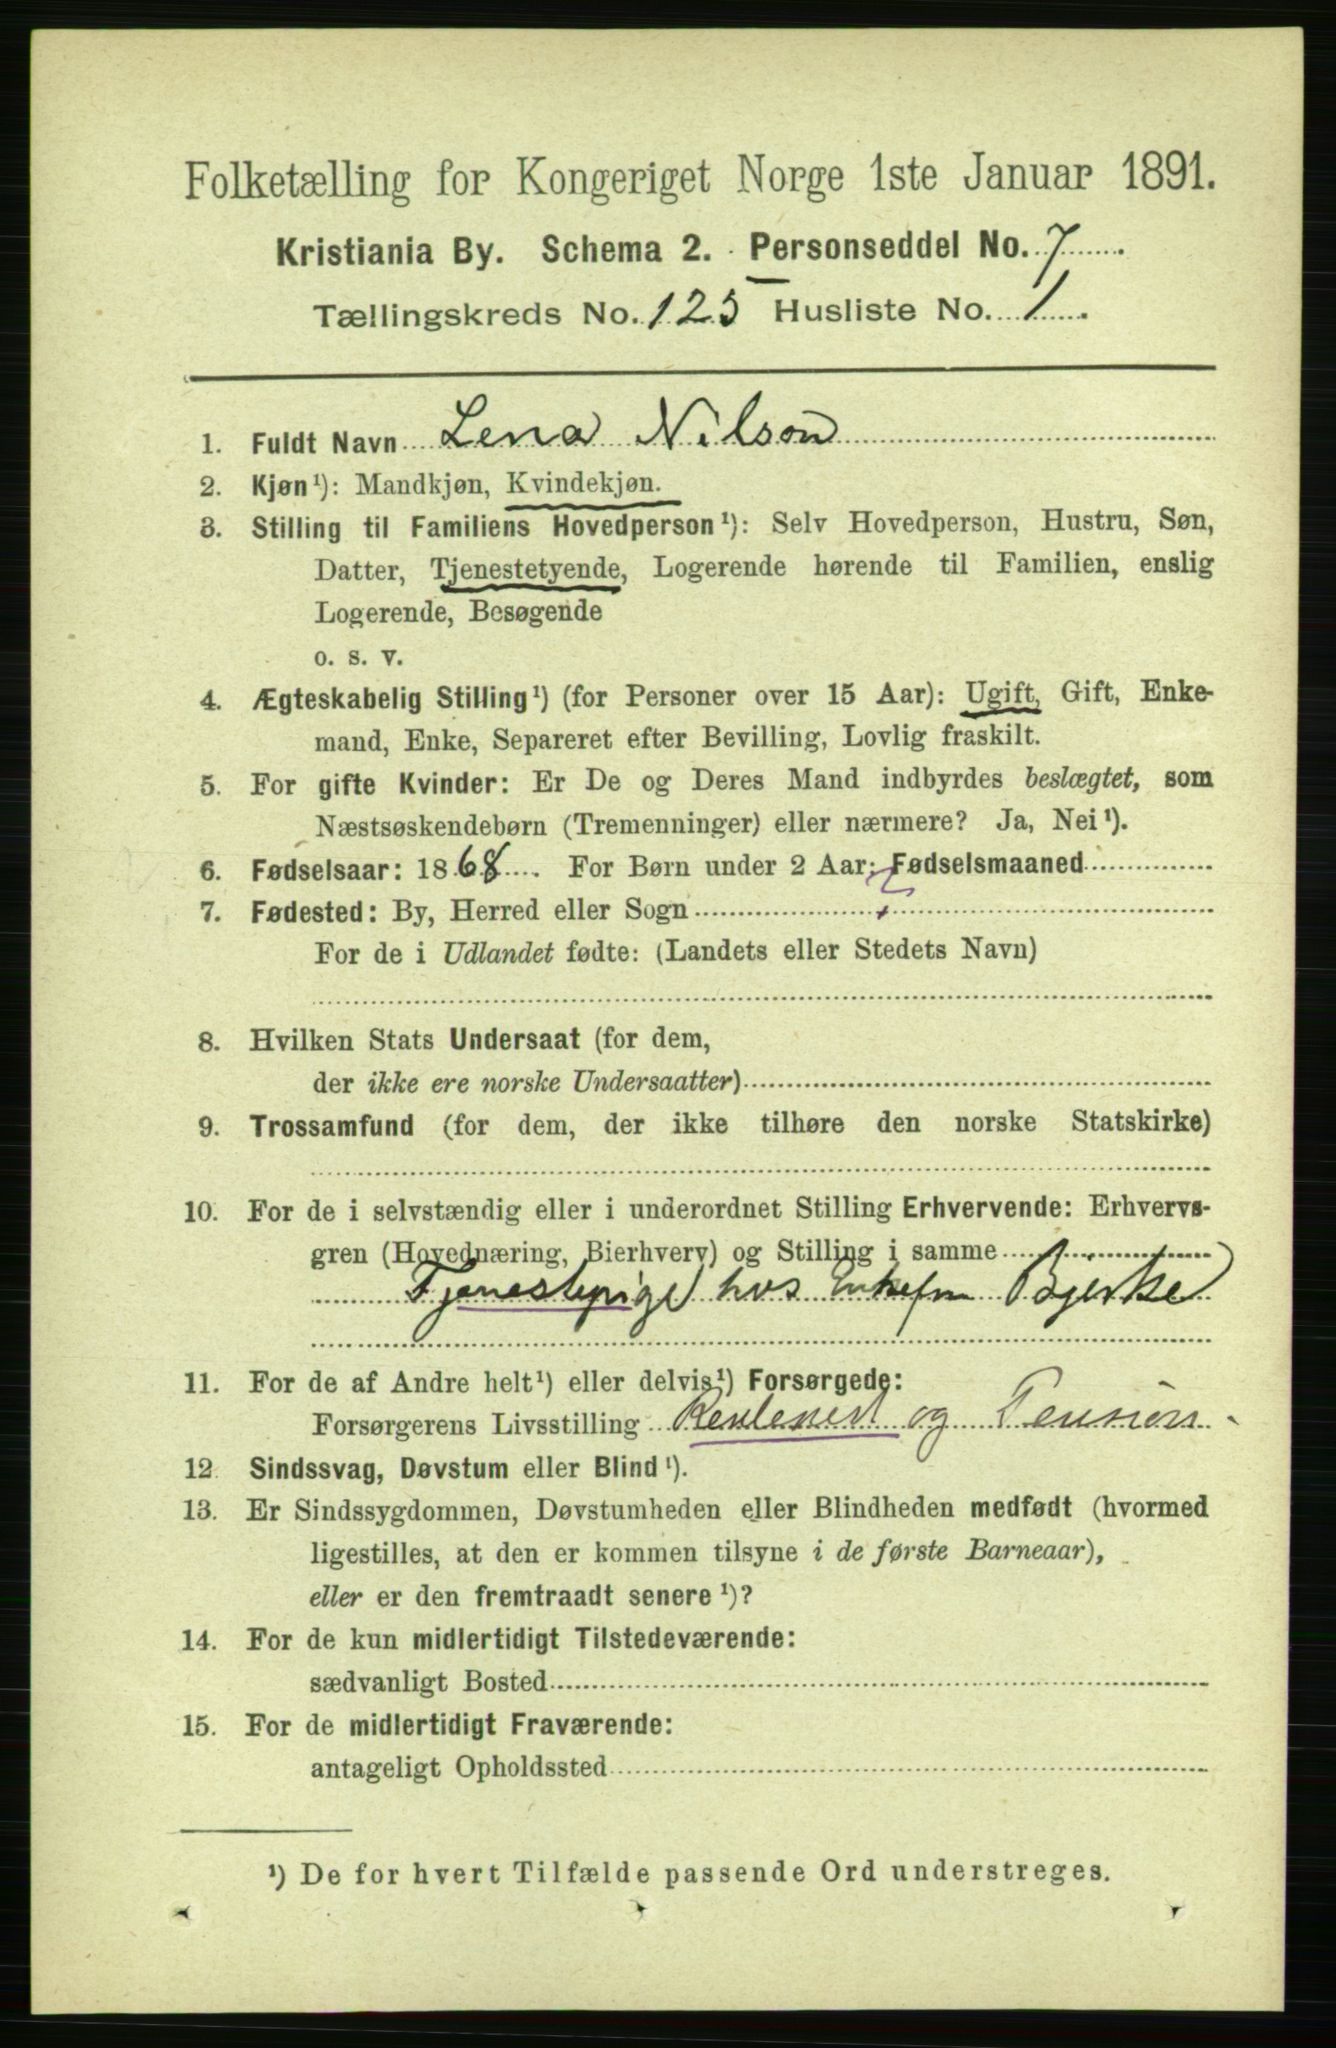 Folketælling for Kongeriget Norge 1ste Januar 1891.
Kristiania By. Schema 2. Personseddel No. 7
Tællingskreds No. 125 Husliste No. 1
1. Fuldt Navn Lena Nilson
2. Kjøn¹): Mandkjøn, Kvindekjøn.
3. Stilling til Familiens Hovedperson¹): Selv Hovedperson, Hustru, Søn,
Datter, Tjenestetyende, Logerende hørende til Familien, enslig
Logerende, Besøgende
o. s. v.
4. Ægteskabelig Stilling¹) (for Personer over 15 Aar): Ugift, Gift, Enke-
mand, Enke, Separeret efter Bevilling, Lovlig fraskilt.
5. For gifte Kvinder: Er De og Deres Mand indbyrdes beslægtet, som
Næstsøskendebørn (Tremenninger) eller nærmere? Ja, Nei¹).
6. Fødselsaar: 1868. For Børn under 2 Aar: Fødselsmaaned
7. Fødested: By, Herred eller Sogn
For de i Udlandet fødte: (Landets eller Stedets Navn)
8. Hvilken Stats Undersaat (for dem,
der ikke ere norske Undersaatter)
9. Trossamfund (for dem, der ikke tilhøre den norske Statskirke)
10. For de i selvstændig eller i underordnet Stilling Erhvervende: Erhvervs-
gren (Hovednæring, Bierhverv) og Stilling i samme
Tjenestepige hos Enkefru Bjerke
11. For de af Andre helt¹) eller delvis¹) Forsørgede:
Forsørgerens Livsstilling og Pension
12. Sindssvag, Døvstum eller Blind¹).
13. Er Sindssygdommen, Døvstumheden eller Blindheden medfødt (hvormed
ligestilles, at den er kommen tilsyne i de første Barneaar),
eller er den fremtraadt senere¹)?
14. For de kun midlertidigt Tilstedeværende:
sædvanligt Bosted
15. For de midlertidigt Fraværende:
antageligt Opholdssted
¹) De for hvert Tilfælde passende Ord understreges.